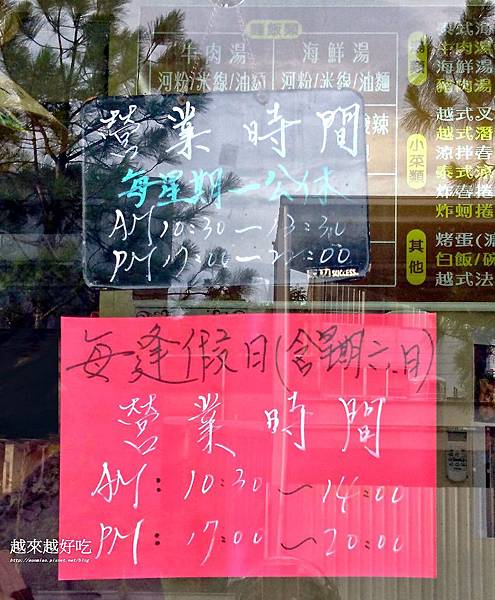 麵飯類
牛肉湯 海鮮湯
河粉/米線/油麵 河粉/米線/油麵
海鮮湯
豬肉湯
小菜類
越式
涼拌春
泰式涼
炸春捲
炸蚵捲
其他
烤蛋(
白飯/碗
越式法
營業時間
每星期一公休
AM 10:30 — 13:30
PM 17:00 —
SUCCESS
每逢假日(含星期六.日)
營業時間
AM: 10:30 ~ 14:00
PM: 17:00 ~ 20:00
越來越好吃
http://sonmiao.pixnet.net/blog